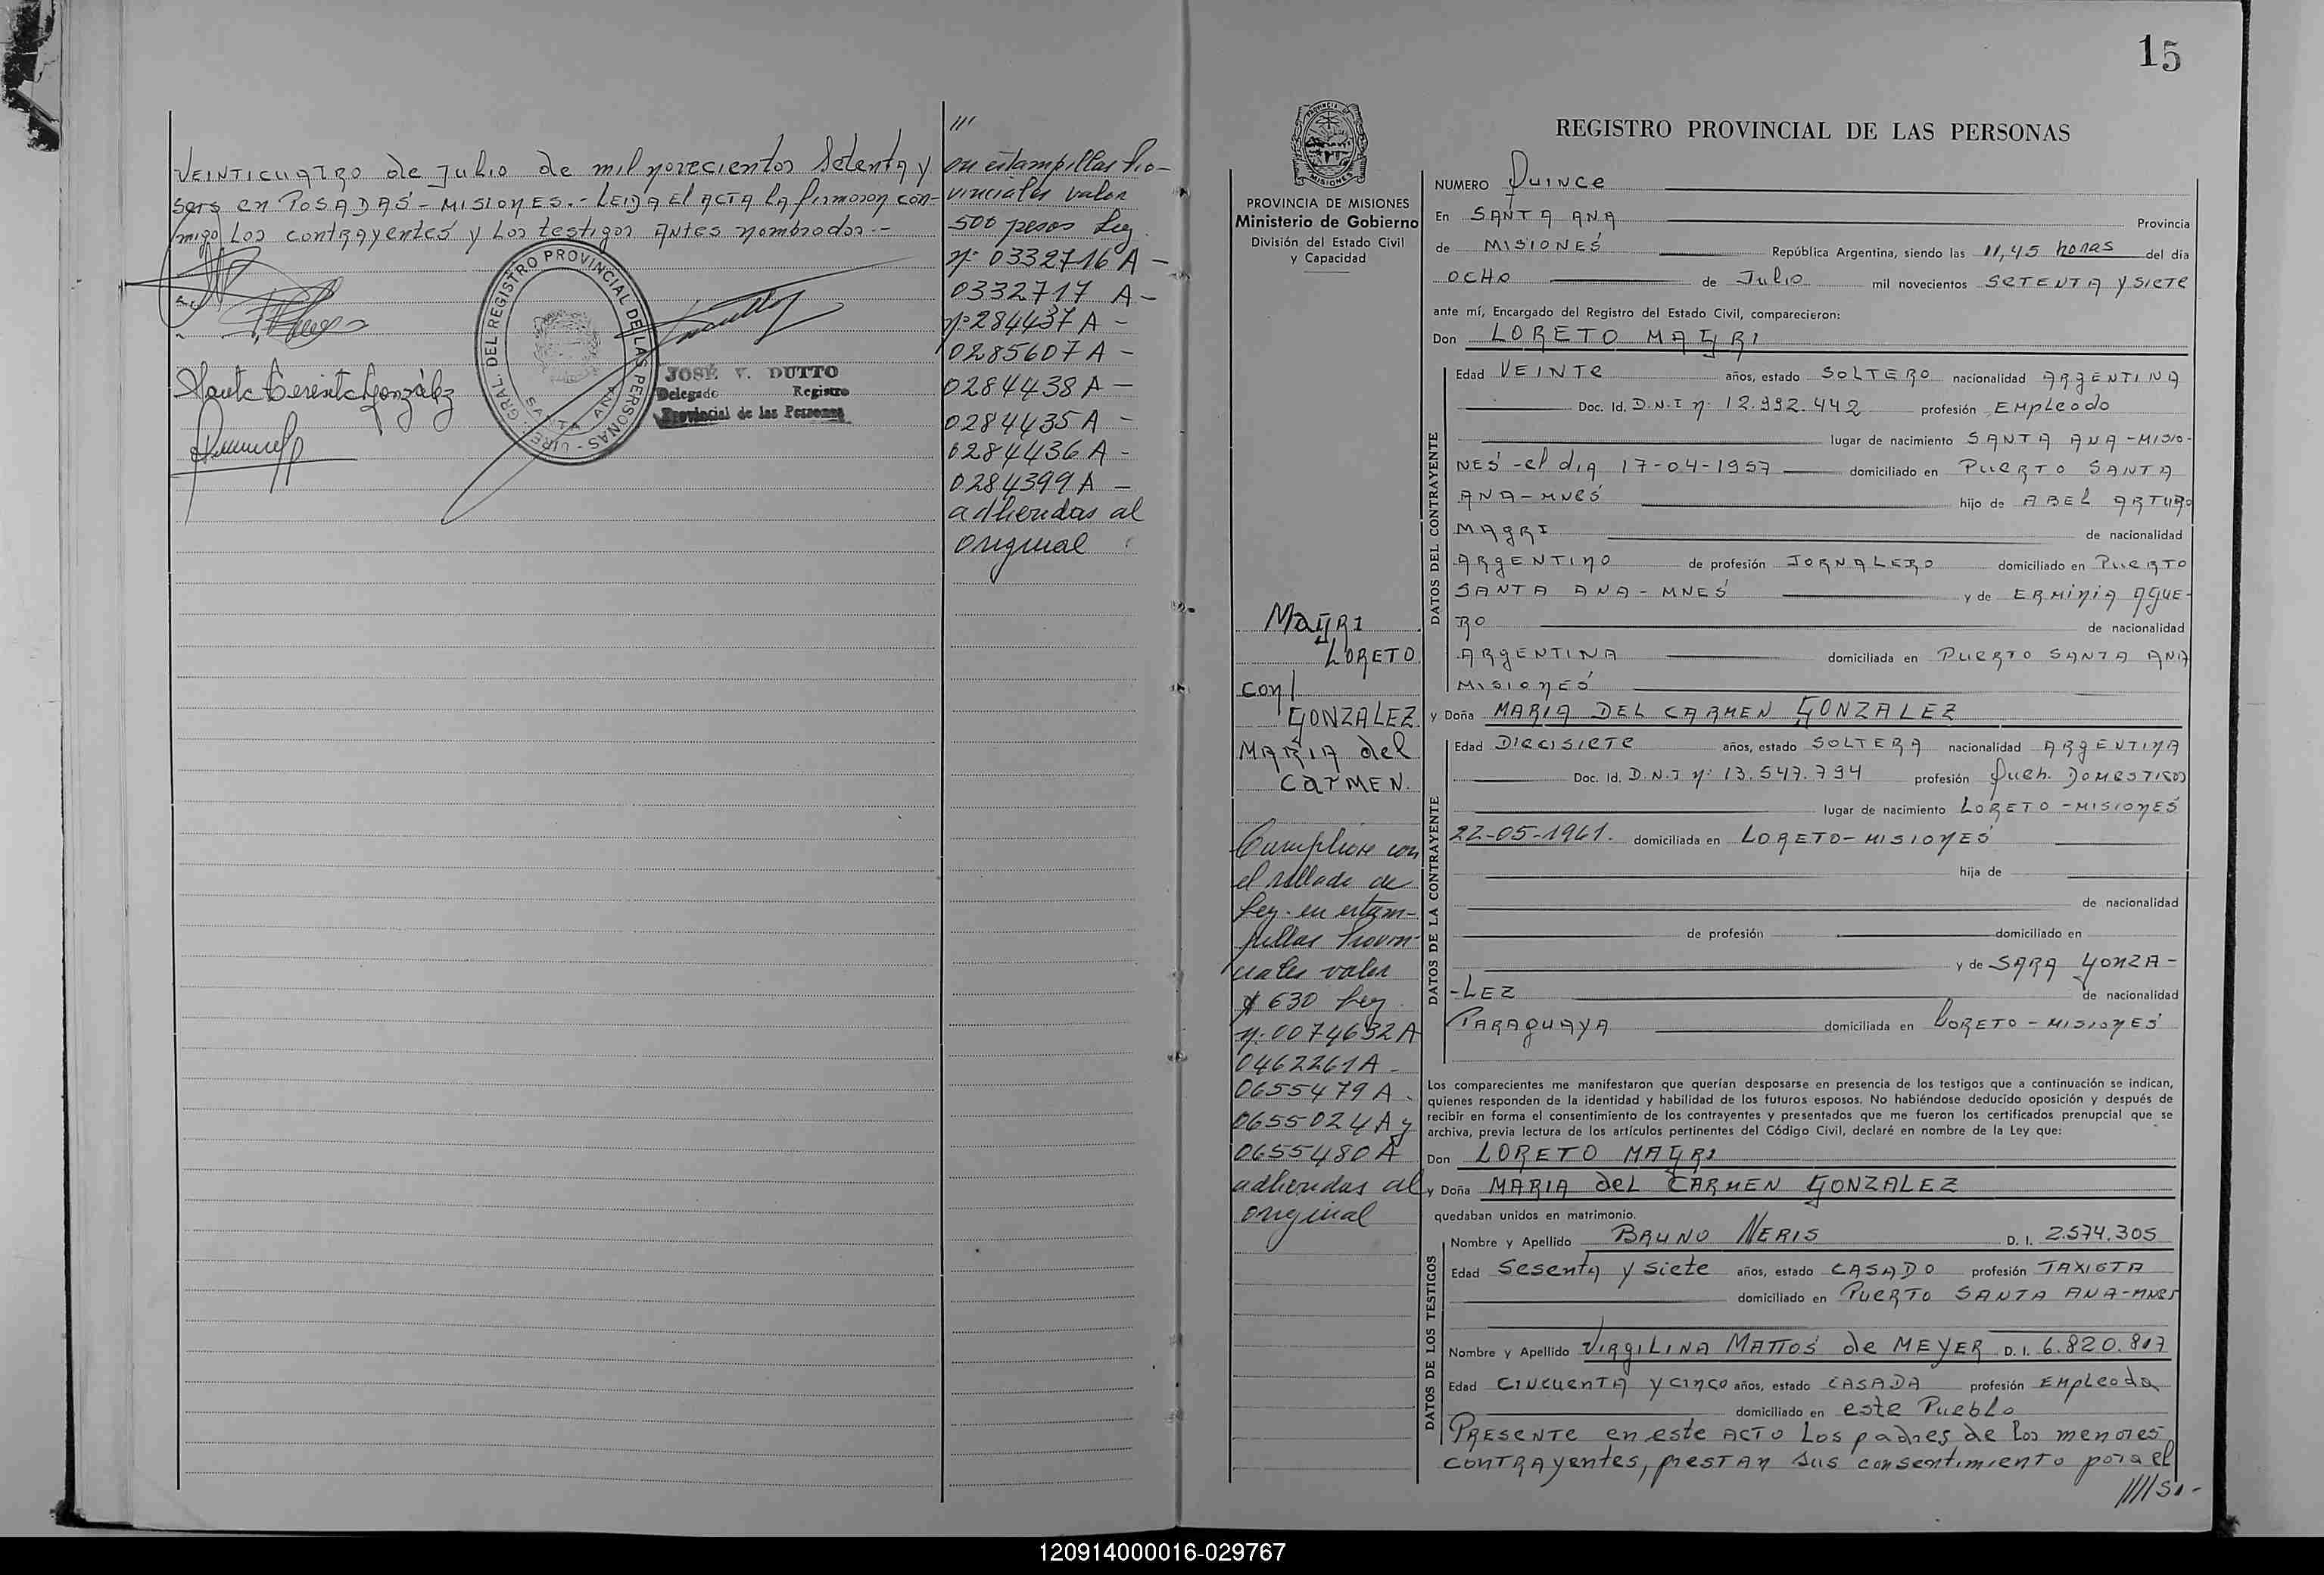 VEINTICUATRO de Julio de mil novecientos Setenta y
seis en POSADAS - MISIONES.- LEIDA El ACTA la firmaron con-
migo Los contrayentes y Los testigos Antes nombrados.-
GRAL. DEL REGISTRO PROVINCIAL DE LAS PERSONAS - DIRE.
SANTA ANA
JOSÉ V. DUTTO
Delegado Registro
Provincial de las Personas
González
///
en estampillas Pro-
vinciales valor
500 pesos Ley
Nº 0332716 A -
0332717 A -
Nº 284437 A -
0285607 A -
0284438 A -
0284435 A -
0284436 A -
0284399 A -
adheridas al
original
15
PROVINCIA DE MISIONES
Ministerio de Gobierno
División del Estado Civil
y Capacidad
MAGRI
LORETO
con/
GONZALEZ
MARIA del
CARMEN.
Cumpliose con
el sellado de
Ley. en estam-
pillas Provin-
ciales valor
$ 630 Ley
Nº 0074632 A
0462261 A -
0655479 A -
0655024 A y
0655480 A
adheridas al
original
REGISTRO PROVINCIAL DE LAS PERSONAS
NUMERO Quince
En SANTA ANA Provincia
de MISIONES República Argentina, siendo las 11,45 horas del día
OCHO de Julio mil novecientos SETENTA y SIETE
ante mí, Encargado del Registro del Estado Civil, comparecieron:
Don LORETO MAGRI
DATOS DEL CONTRAYENTE
Edad VEINTE años, estado SOLTERO nacionalidad ARGENTINA
Doc. Id. D.N.I Nº 12.992.442 profesión EMPLEADO
lugar de nacimiento SANTA ANA - MISIO-
NES - el dia 17-04-1957 domiciliado en PUERTO SANTA
ANA - MNES hijo de ABEL ARTURO
MAGRI de nacionalidad
ARGENTINO de profesión JORNALERO domiciliado en PUERTO
SANTA ANA - MNES y de ERMINIA AGUE-
RO de nacionalidad
ARGENTINA domiciliada en PUERTO SANTA ANA
MISIONES
y Doña MARIA DEL CARMEN GONZALEZ
DATOS DE LA CONTRAYENTE
Edad DIECISIETE años, estado SOLTERA nacionalidad ARGENTINA
Doc. Id. D.N.I Nº 13.547.794 profesión Queh. DOMESTICOS
lugar de nacimiento LORETO - MISIONES
22-05-1961. domiciliada en LORETO - MISIONES
hija de
de nacionalidad
de profesión domiciliado en
y de SARA GONZA-
-LEZ de nacionalidad
PARAGUAYA domiciliada en LORETO - MISIONES
Los comparecientes me manifestaron que querían desposarse en presencia de los testigos que a continuación se indican,
quienes responden de la identidad y habilidad de los futuros esposos. No habiéndose deducido oposición y después de
recibir en forma el consentimiento de los contrayentes y presentados que me fueron los certificados prenupcial que se
archiva, previa lectura de los artículos pertinentes del Código Civil, declaré en nombre de la Ley que:
Don LORETO MAGRI
y Doña MARIA del CARMEN GONZALEZ
quedaban unidos en matrimonio.
DATOS DE LOS TESTIGOS
Nombre y Apellido BRUNO NERIS D. I. 2.574.305
Edad Sesenta y Siete años, estado CASADO profesión TAXISTA
domiciliado en PUERTO SANTA ANA - MNES
Nombre y Apellido VIRGILINA MATTOS de MEYER D. I. 6.820.817
Edad CINCUENTA y CINCO años, estado CASADA profesión EMPLEADA
domiciliado en este Pueblo
PRESENTE en este ACTO Los padres de los menores
CONTRAYENTES, prestan sus consentimiento para el
/////s.-
120914000016-029767